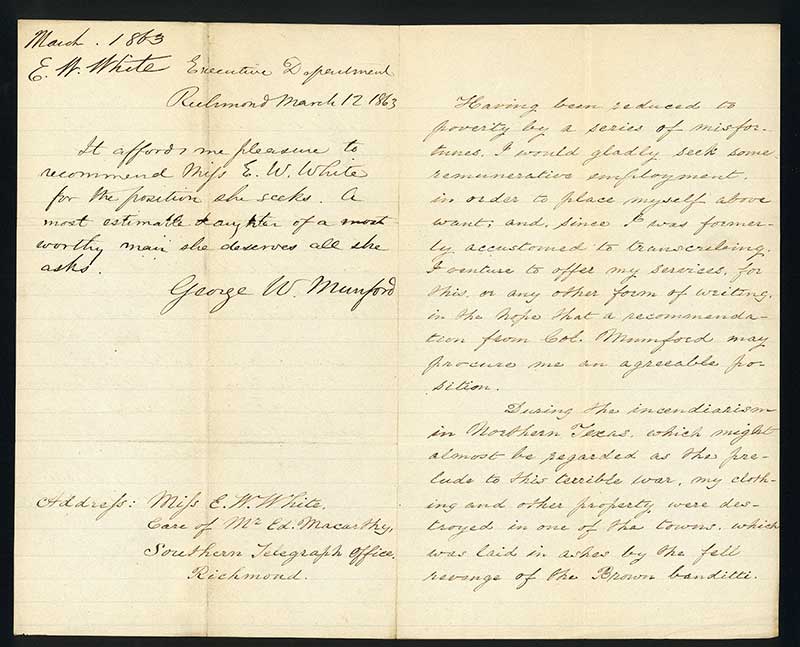 March. 1863
E. W. White
Executive Department
Richmond March 12 1863
It affords me pleasure to
recommend Miss E. W. White
for the position she seeks. A
most estimable daughter of a most
worthy man she deserves all she
asks.
George W. Munford
Address: Miss E. W. White,
Care of Mr Ed. Macarthy,
Southern Telegraph Office,
Richmond.
Having been reduced to
poverty by a series of misfor-
tunes, I would gladly seek some
remunerative employment,
in order to place myself above
want; and, since I was former-
ly accustomed to transcribing,
I venture to offer my services, for
this, or any other form of writing,
in the hope that a recommenda-
tion from Col. Mumford may
procure me an agreeable po-
sition.
During the incendiarism
in Northern Texas, which might
almost be regarded as the pre-
lude to this terrible war, my cloth-
ing and other property were des-
troyed in one of the towns, which
was laid in ashes by the fell
revenge of the Brown banditti.